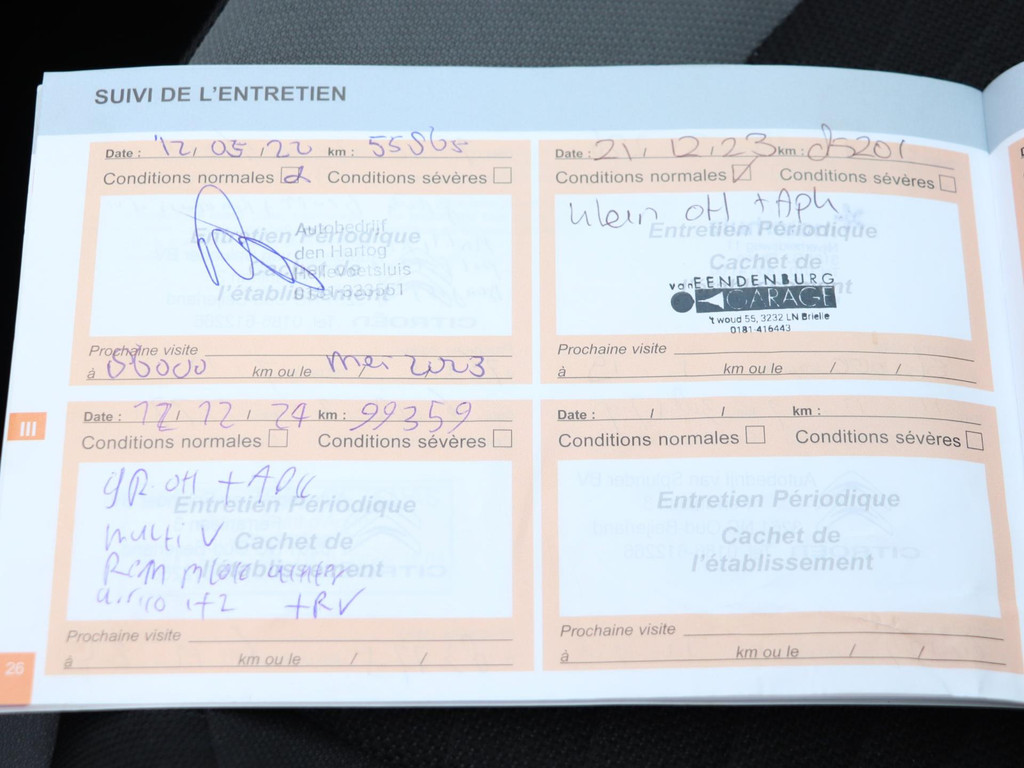 SUIVI DE L'ENTRETIEN
Date : 12/05/22 km : 55865
Conditions normales Conditions sévères
Entretien Périodique
Cachet de
l'établissement
Autobedrijf
den Hartog
Hellevoetsluis
0181-323561
Prochaine visite
à 86000 km ou le mei 2023
Date : 21/12/23 km : 85201
Conditions normales Conditions sévères
klein OH + Apk
Entretien Périodique
Cachet de
l'établissement
van EENDENBURG
GARAGE
't woud 55, 3232 LN Brielle
0181-416443
Prochaine visite
à km ou le / /
III
Date : 12/12/24 km : 99359
Conditions normales Conditions sévères
gR. OH + APK
multi V
Rem
+RV
Entretien Périodique
Cachet de
l'établissement
Prochaine visite
à km ou le / /
Date : / / km :
Conditions normales Conditions sévères
Entretien Périodique
Cachet de
l'établissement
Prochaine visite
à km ou le / /
26